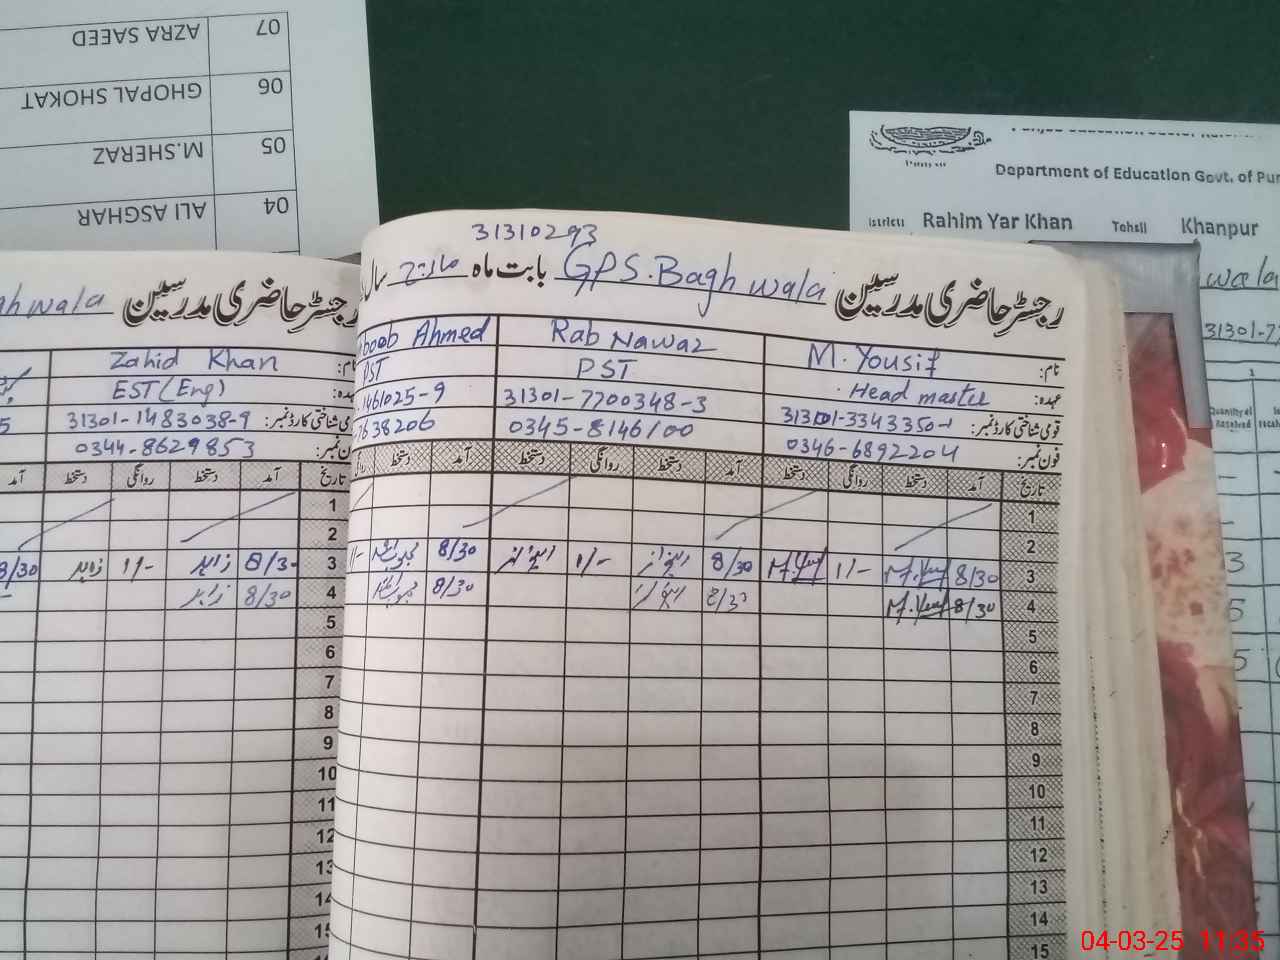 07 AZRA SAEED
06 GHOPAL SHOKAT
05 M.SHERAZ
04 ALI ASGHAR
Department of Education Govt. of Pun
Rahim Yar Khan Tehsil Khanpur
wala
31301-77
1
Quantity
Received
3
5
5
31310293
رجسٹر حاضری مدرسین GPS.Bagh wala بابت ماہ مارچ سال
نام: M. Yousif Rab Nawaz boob Ahmed
عہدہ: Head master PST PST
قومی شناختی کارڈ نمبر: 313101-3343350-1 31301-7700348-3 1461025-9
فون نمبر: 0346-6892204 0345-8146100 7638206
تاریخ آمد دستخط روانگی دستخط آمد دستخط روانگی دستخط آمد دستخط
1
2
3 8/30 M.Yousif 1/- M.Yousif 8/30 رب نواز 1/- رب نواز 8/30 1/-
4 8/30 M.Yousif 8/30 رب نواز 8/30
5
6
7
8
9
10
11
12
13
14
15
رجسٹر حاضری مدرسین gh wala
نام: Zahid Khan
عہدہ: EST (Eng)
قومی شناختی کارڈ نمبر: 31301-1483038-9 5
فون نمبر: 0344-8629853
آمد دستخط روانگی دستخط آمد
1
2
3 8/30 زاہد 1/- زاہد 8/30
4 8/30 زاہد
5
6
7
8
9
10
11
12
13
14
15
04-03-25 11:35